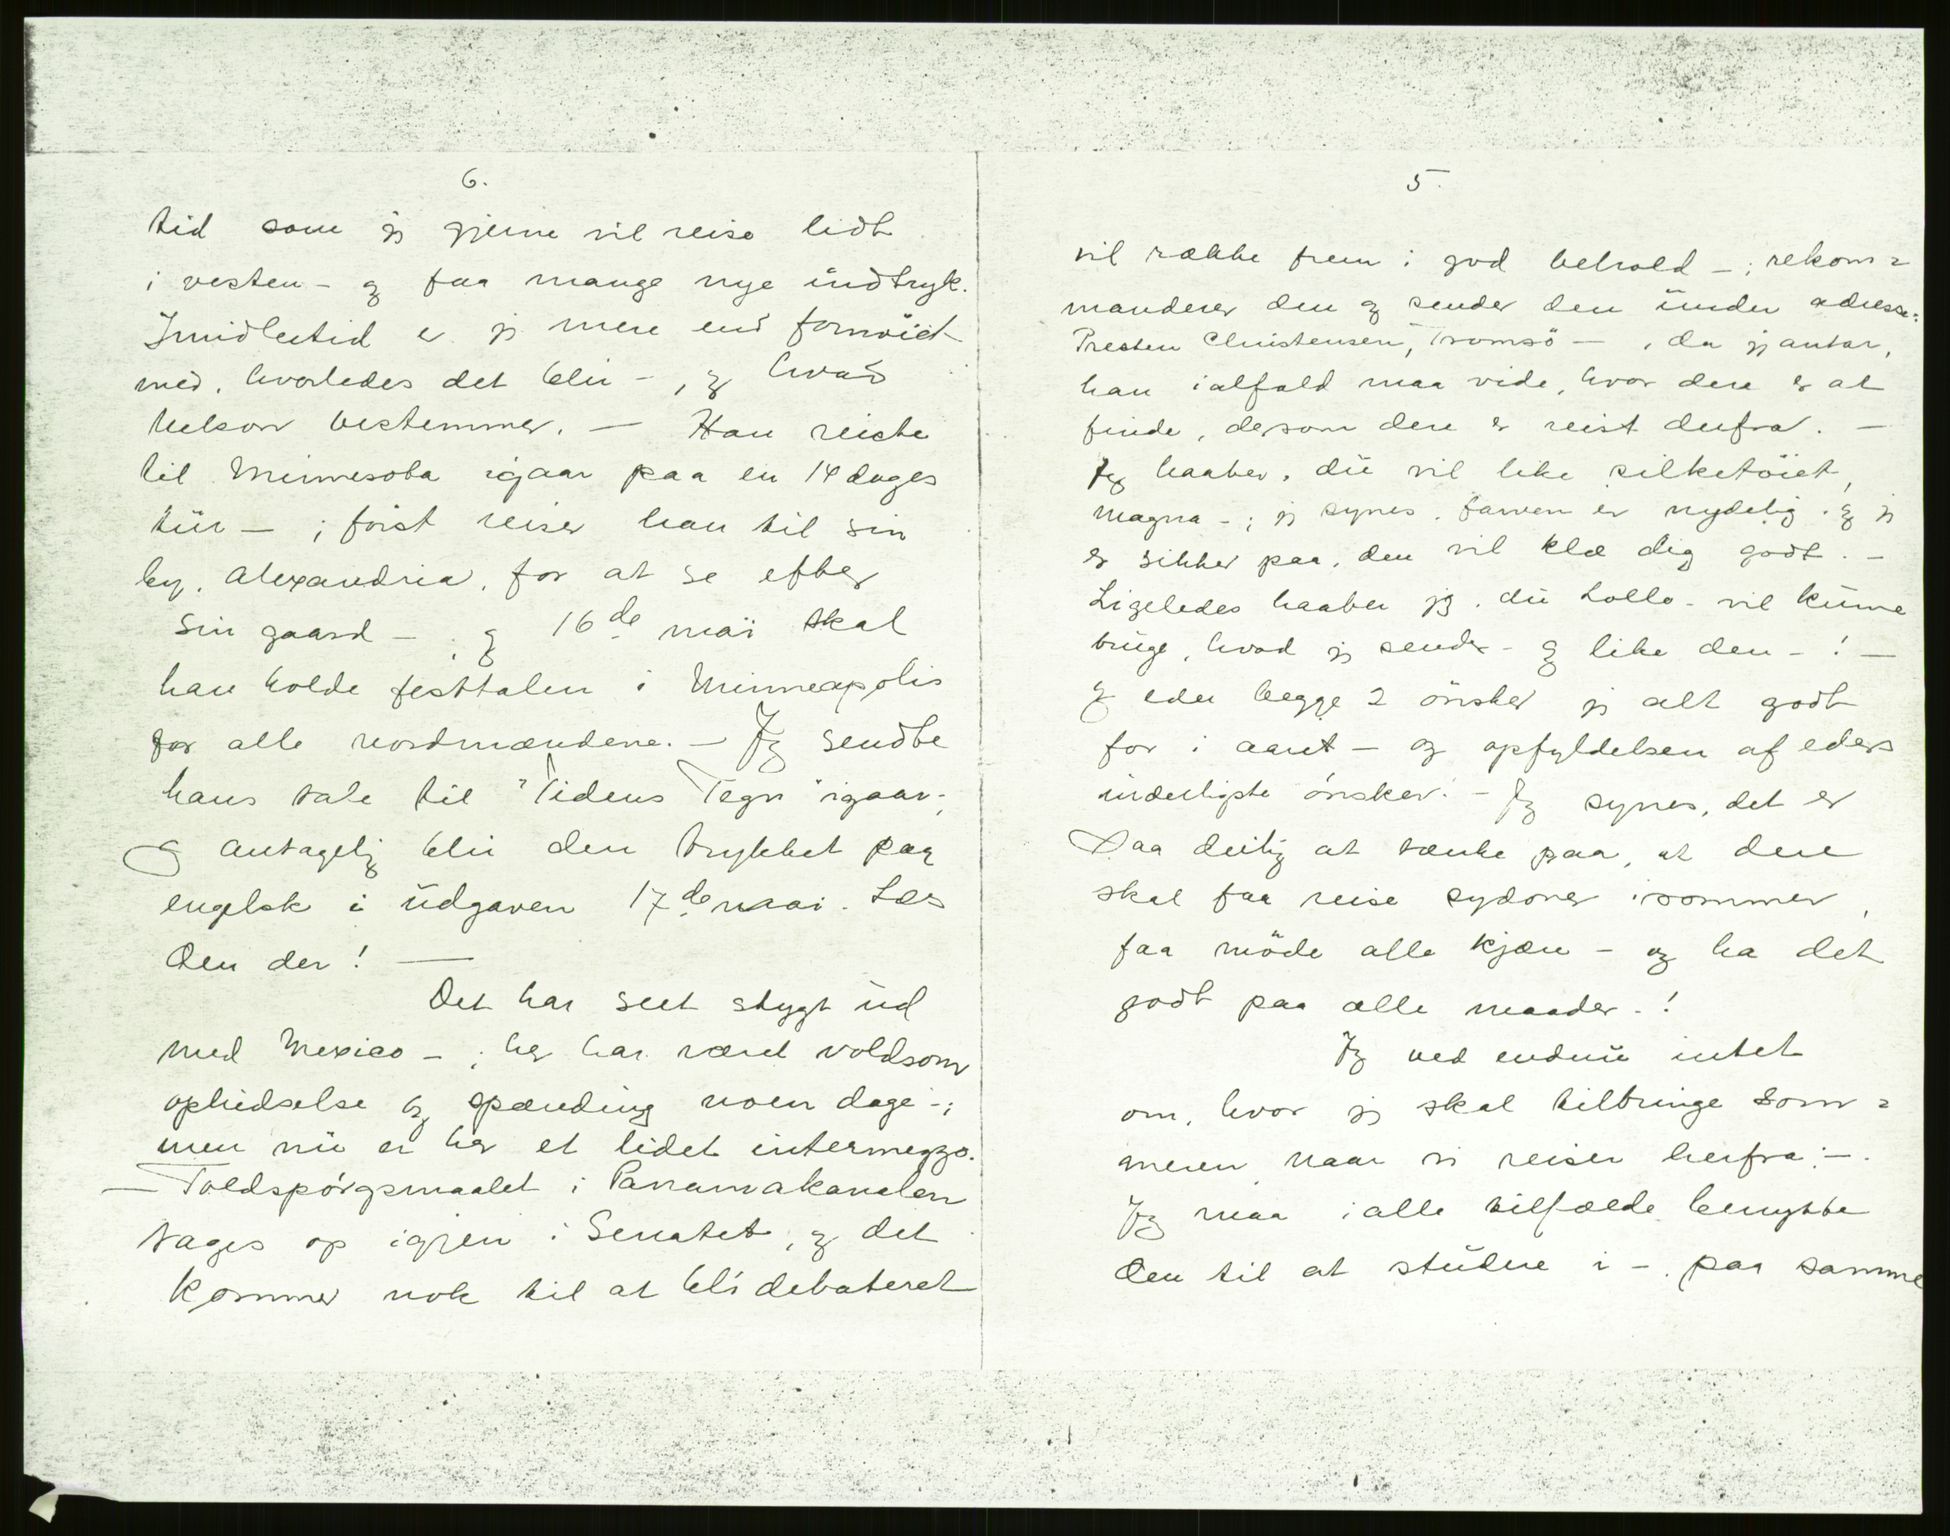 5.
vil række frem i god behold - ; rekom=
manderer den og sender den ünder adresse:
Presten Christensen, Tromsö - , da jg antar,
han ialfald maa vide, hvor dere er at
finde, dersom dere er reist derfra. -
Jeg haaber, dü vil like silketöiet,
Magna - ; jg synes, farven er nydelig, og jg
er sikker paa, den vil klæ dig godt. -
Ligeledes haaber jg, dü Lolle - vil künne
brüge, hvad jg sender - og like den - ! -
Og eder begge 2 önsker jg alt godt
for i aaret - og opfyldelsen af eders
inderligste önsker. - Jg synes, det er
saa deilig at tænke paa, at dere
skal faa reise sydover isommer,
faa möde alle kjære - og ha det
godt paa alle maader - !
Jg ved endnü intet
om, hvor jg skal tilbringe som=
meren, naar vi reiser herfra; -
Jeg maa i alle tilfælde benytte
den til at stüdere i - , paa samme
6.
tid som jg gjerne vil reise lidt
i vesten - og faa mange nye indtryk.
Imidlertid er jg mere end fornöiet
med, hvorledes det blir - , og hvad
Nelson bestemmer. - Han reiste
til Minnesota igaar paa en 14 dages
tür - ; först reiser han til sin
by, Alexandria, for at se efter
sin gaard - , og 16de mai skal
han holde festtalen i Minneapolis
for alle nordmændene. - Jeg sendte
hans tale til "Tidens Tegn" igaar -,
og antagelig blir den trykket paa
engelsk i üdgaven 17de maai. Læs
den der! -
Det har seet stygt üd
med Mexico - ; her har været voldsom
ophidselse og spænding noen dage - ;
men nü er her et lidet intermezzo.
- Toldspörgsmaalet i Panamakanalen
tages op igjen i Senatet, og det
kommer nok til at bli debateret